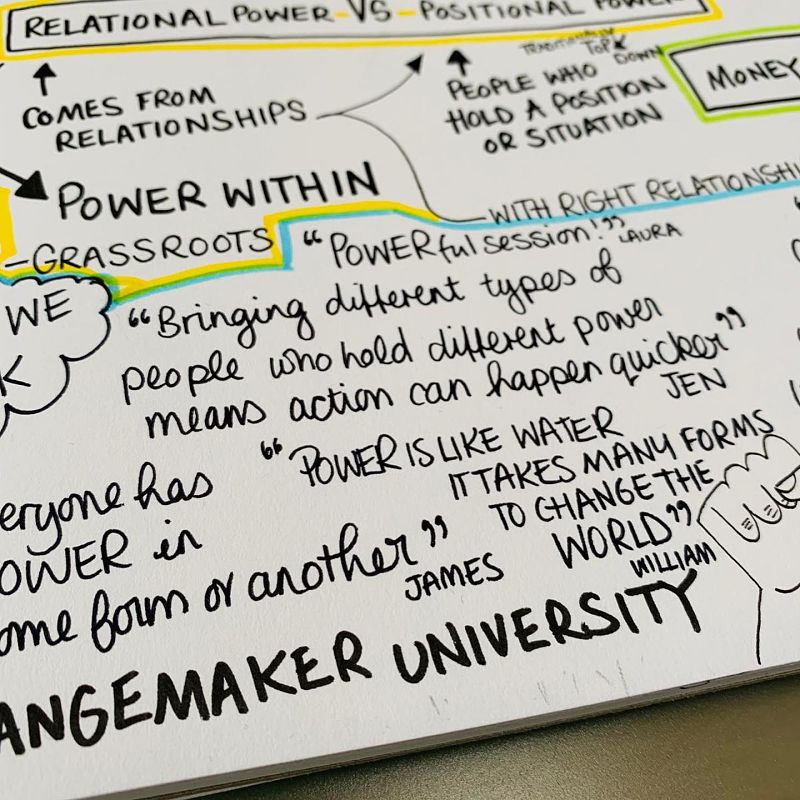 RELATIONAL POWER - VS - POSITIONAL POWER
COMES FROM
RELATIONSHIPS
TRADITIONALLY
TOP
DOWN
PEOPLE WHO
HOLD A POSITION
OR SITUATION
MONEY
POWER WITHIN
- GRASSROOTS
WITH RIGHT RELATIONSHI
"POWERful session!" LAURA
WE
K
"Bringing different types of
people who hold different power
means action can happen quicker"
JEN
eryone has
OWER in
ome form or another"
JAMES
"POWER IS LIKE WATER
IT TAKES MANY FORMS
TO CHANGE THE
WORLD"
WILLIAM
ANGEMAKER UNIVERSITY